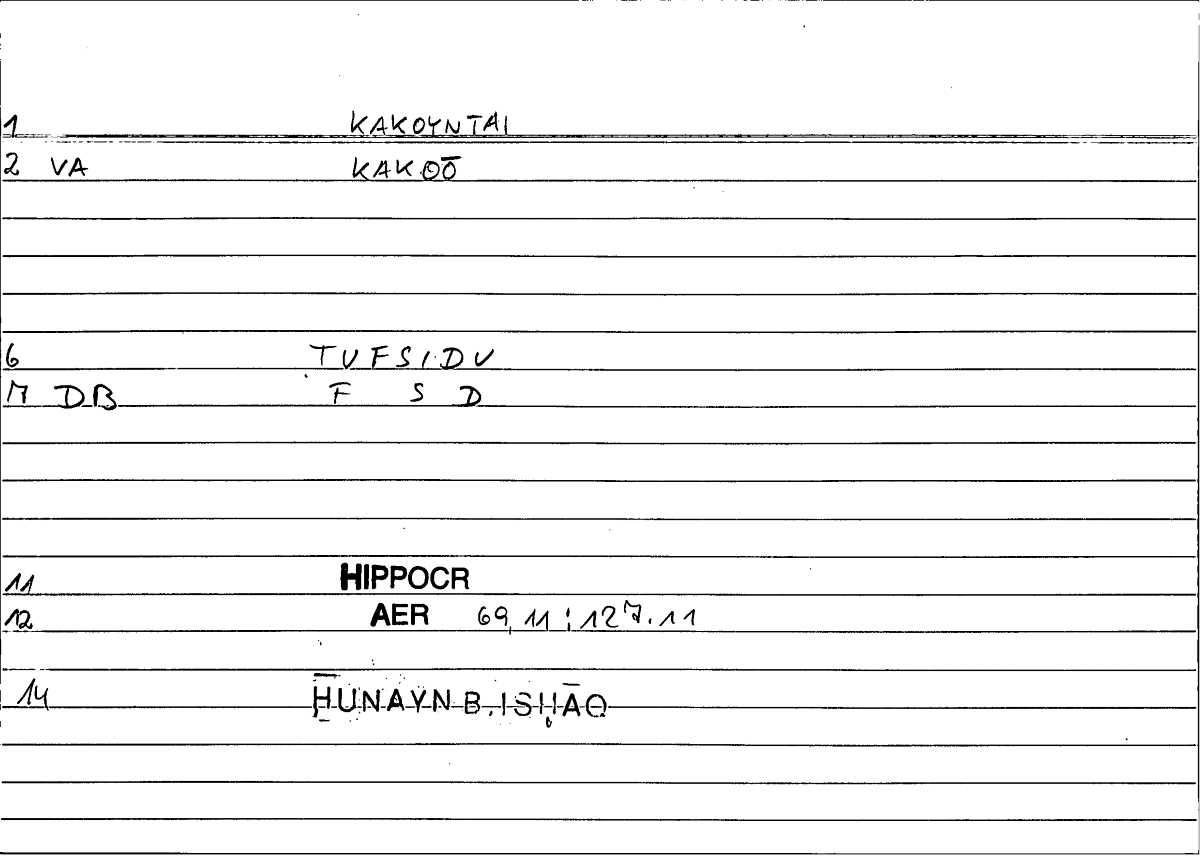 1 KAKOYNTAI
2 VA KAKOŌ
6 TUFSIDU
7 DB F S D
11 HIPPOCR
12 AER 69,11 ; 127.11
14 ḤUNAYN B. ISḤĀQ